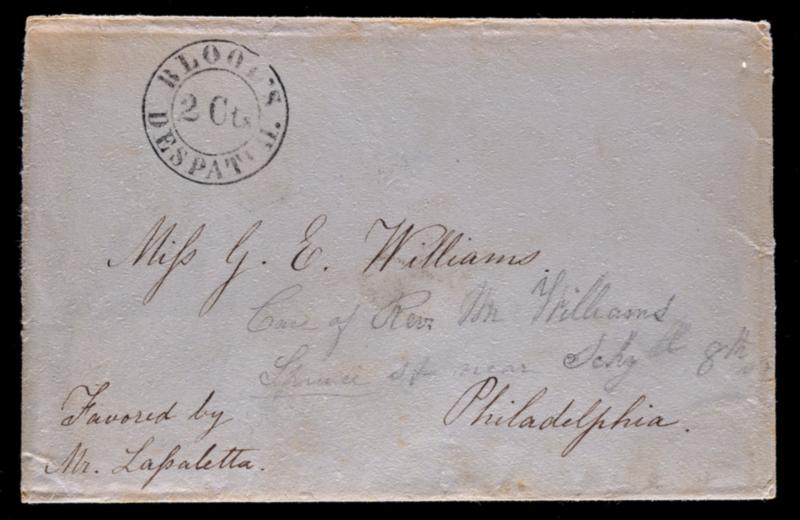 BLOOD'S
2 Cts
DESPATCH.
Miſs G. E. Williams.
Care of Rev. Mr Williams
Spruce St near Schyll 8th
Favored by
Philadelphia.
Mr. Laſsaletta.